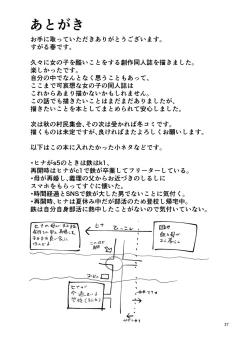 あとがき
お手に取っていただきありがとうございます。
すがる春です。
久々に女の子を酷いことをする創作同人誌を描きました。
楽しかったです。
自分の中でなんとなく思うこともあって、
ここまで可哀想な女の子の同人誌は
これからあまり描かないかもしれません。
この話でも描きたいことはまだまだありましたが、
描きたいことを本としてまとめられて安心しました。
次は秋の村民集会、その次は受かれば冬コミです。
描くものは未定ですが、良ければまたよろしくお願いします。
以下はこの本に入れたかった小ネタなどです。
・ヒナがs5のときは鉄はk1、
再開時はヒナがc1で鉄が卒業してフリーターしている。
・母が再婚し、義理の父からお近づきのしるしに
スマホをもらってすぐに懐いた。
・時間経過とSNSで鉄が大した男でないことに気付く。
・再開時、ヒナは夏休み中だが部活のため登校し帰宅中。
鉄は自分自身部活に熱中したことがないので気付いていない。
ヒナ
鉄
コンビニ
37